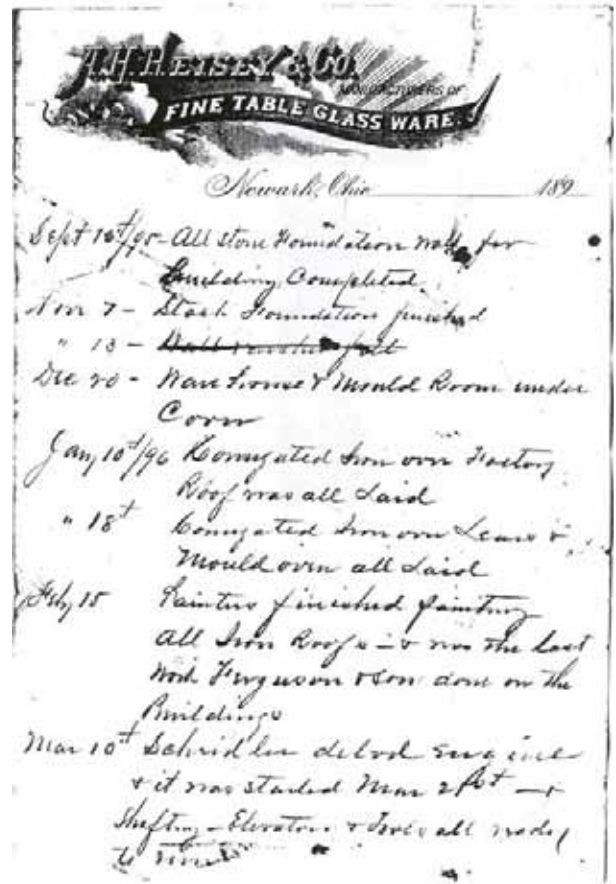 A.H. HEISEY & CO.
MANUFACTURERS OF
FINE TABLE GLASS WARE.
Newark, Ohio 189
Sept 10t/95 - All stone Foundation walls for
Building Completed.
Nov 7 - Stack Foundation finished
" 13 -
Dec 20 - Ware house & Mould Room under
Cover
Jany 10t/96 Corrugated Iron over Factory
Roof was all Laid
" 18t Corrugated Iron over Lears &
Mould oven all Laid
Feby 15 Painters finished painting
All Iron Roofs - & was the last
work Ferguson & Son done on the
Buildings
Mar 10t Schridler delvd engine
& it was started Mar 21st - &
Shafting - Elevators & all ready
to